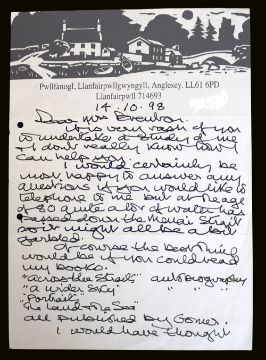 Pwllfanogl, Llanfairpwllgwyngyll, Anglesey. LL61 6PD
Llanfairpwll 714693
14.10.98
Dear Mrs
It is very rash of you
to undertake a study of me
I don't really know how I
can help you.
I would certainly be
most happy to answer any
questions if you would like to
telephone to me but at the age
of 80 quite a lot of water has
passed down the Menai Strait
so it might all be a bit
garbled.
Of course the best thing
would be if you could read
my books.
"Across the Straits" autobiography
"A Wider Sky" " "
"Portraits"
"The Land & the Sea"
all published by Gomer.
I would have thought